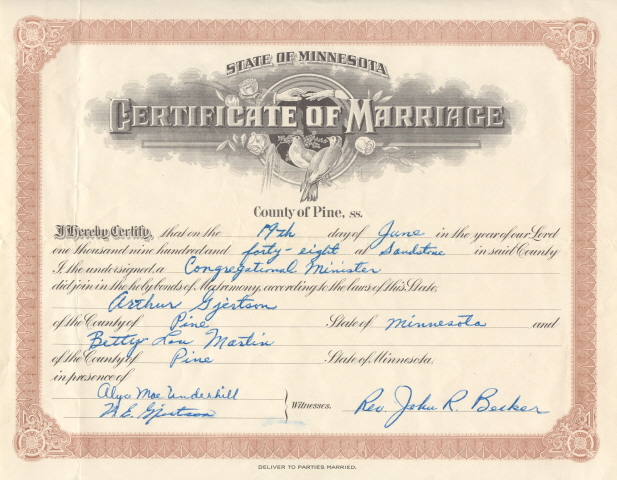 STATE OF MINNESOTA
CERTIFICATE OF MARRIAGE
County of Pine, ss.
I Hereby Certify, that on the 19th day of June in the year of our Lord
one thousand nine hundred and forty-eight at Sandstone in said County
I the undersigned, a Congregational Minister
did join in the holy bonds of Matrimony, according to the laws of this State,
Arthur Gjertson
of the County of Pine State of Minnesota and
Betty Lou Martin
of the County of Pine State of Minnesota.
in presence of
Mae Underhill
Gjertson
Witnesses.
Rev. John R. Becker
DELIVER TO PARTIES MARRIED.